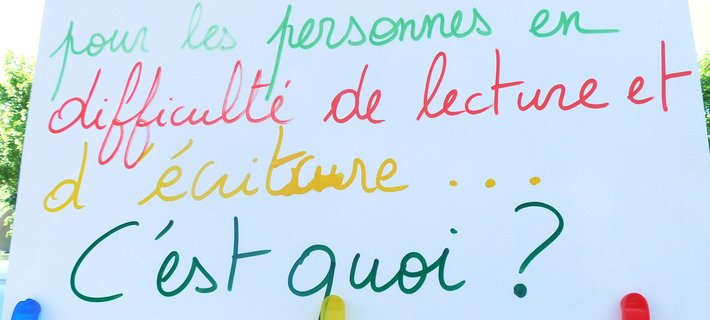 pour les personnes en
difficulté de lecture et
d'écriture ...
C'est quoi ?